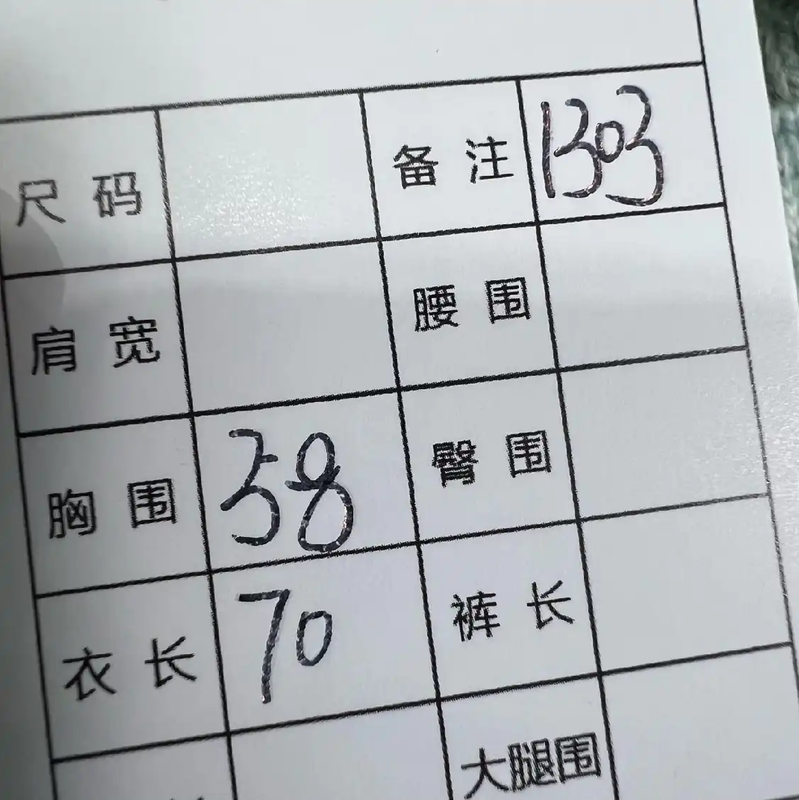 尺码 备注 1303
肩宽 腰围
胸围 58 臀围
衣长 70 裤长
大腿围